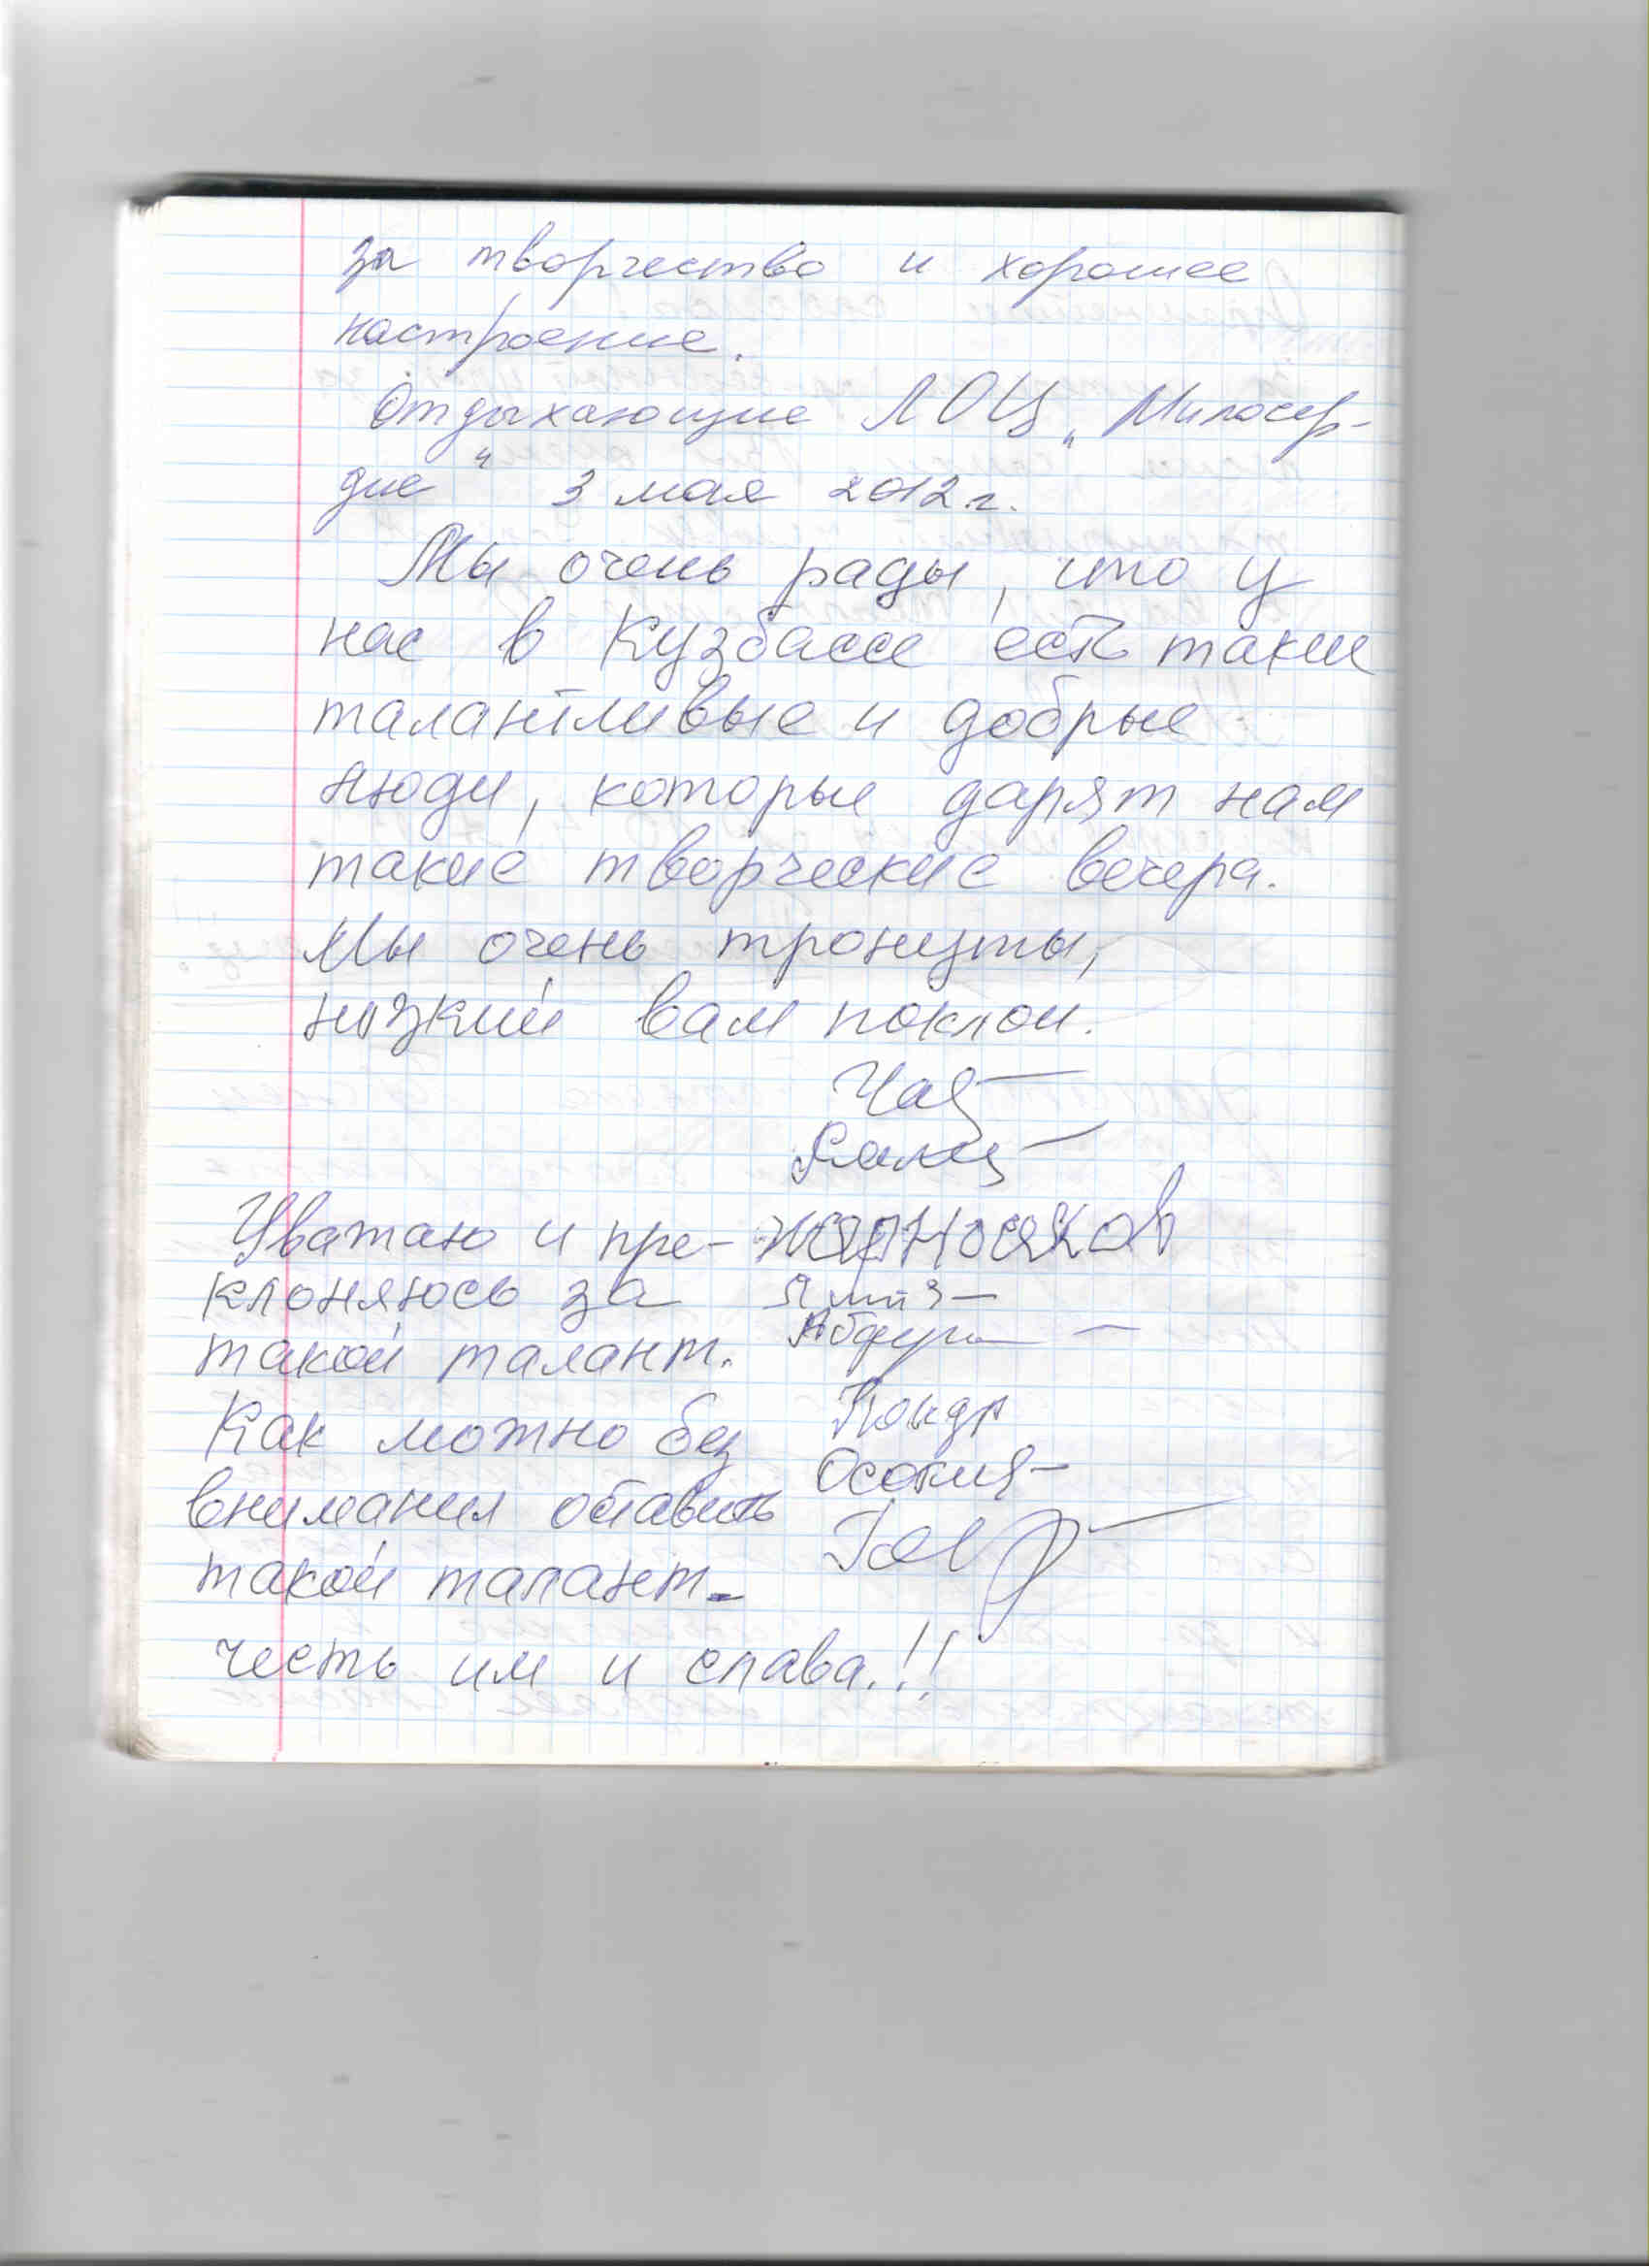 за творчество и хорошее
настроение.
Отдыхающие ЛОЦ „Милосер-
дие" 3 мая 2012 г.
Мы очень рады, что у
нас в Кузбассе есть такие
талантливые и добрые
люди, которые дарят нам
такие творческие вечера.
Мы очень тронуты,
низкий вам поклон.
Уважаю и пре-
клоняюсь за
такой талант.
Как можно без
внимания оставить
такой талант-
честь им и слава.!!